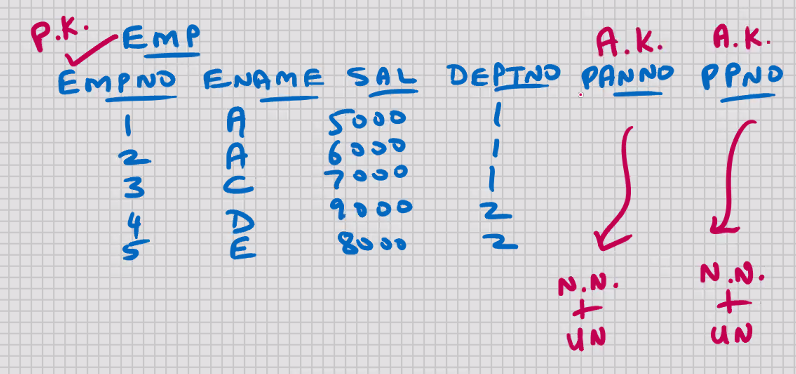 P.K. EMP A.K. A.K.
EMPNO ENAME SAL DEPTNO PANNO PPNO
1 A 5000 1
2 A 6000 1
3 C 7000 1
4 D 9000 2
5 E 8000 2
N.N. N.N.
+ +
UN UN